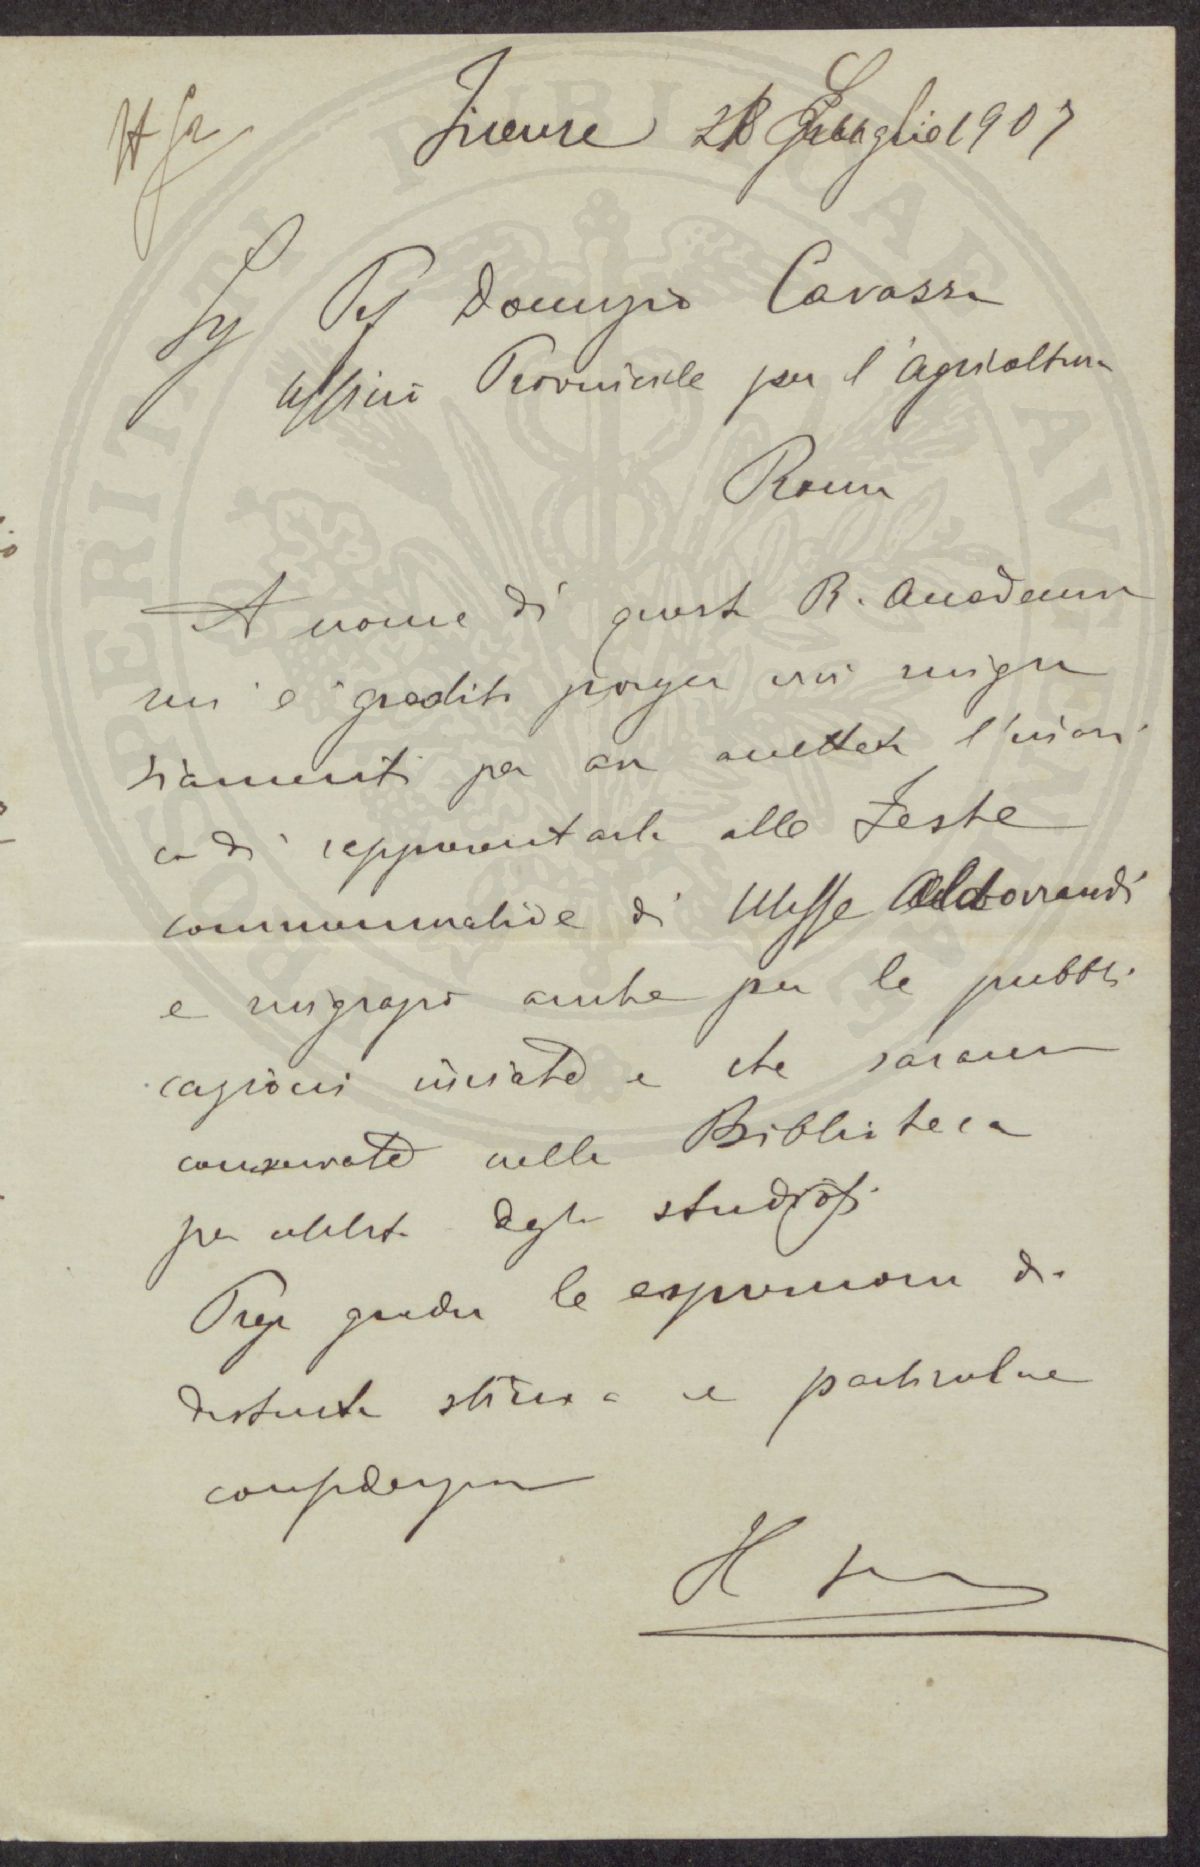 Firenze 28 Luglio 1907
Sg Prof Domizio Cavazza
Ufficio Provinciale per l'Agricoltura
Roma
A nome di questa R. Accademia
mi è gradito porger vivi ringra
ziamenti per aver accettato l'incari
co di rappresentarla alle Feste
commemorative di Ulisse Aldovrandi
e ringrazio anche per le pubbli
cazioni inviate e che saranno
conservate nella Biblioteca
per utilità degli studiosi
Prego gradire le espressioni di
distinta stima e particolare
considerazione
PROSPERITATI PUBLICAE AVGENDAE